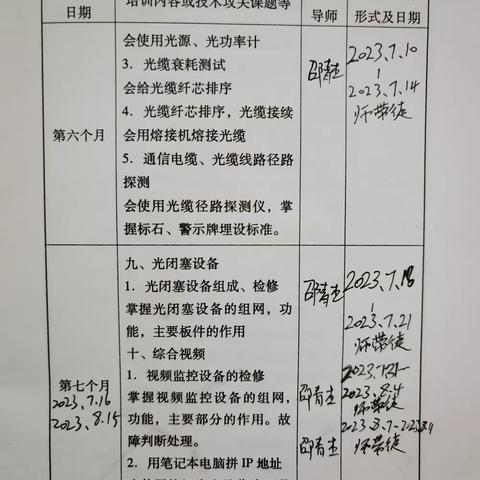 日期
培训内容或技术攻关课题等
导师
形式及日期
第六个月
会使用光源、光功率计
3．光缆衰耗测试
会给光缆纤芯排序
4．光缆纤芯排序，光缆接续
会用熔接机熔接光缆
5．通信电缆、光缆线路径路
探测
会使用光缆径路探测仪，掌
握标石、警示牌埋设标准。
邵青杰
2023、7.10
2023、7.14
师带徒
第七个月
2023、7.16
2023、8.15
九、光闭塞设备
1．光闭塞设备组成、检修
掌握光闭塞设备的组网，功
能，主要板件的作用
十、综合视频
1．视频监控设备的检修
掌握视频监控设备的组网，
功能，主要部分的作用。故
障判断处理。
2．用笔记本电脑拼 IP 地址
邵青杰
2023、7.18
2023、7.21
师带徒
邵青杰
2023、8.4
师带徒
邵青杰
师带徒